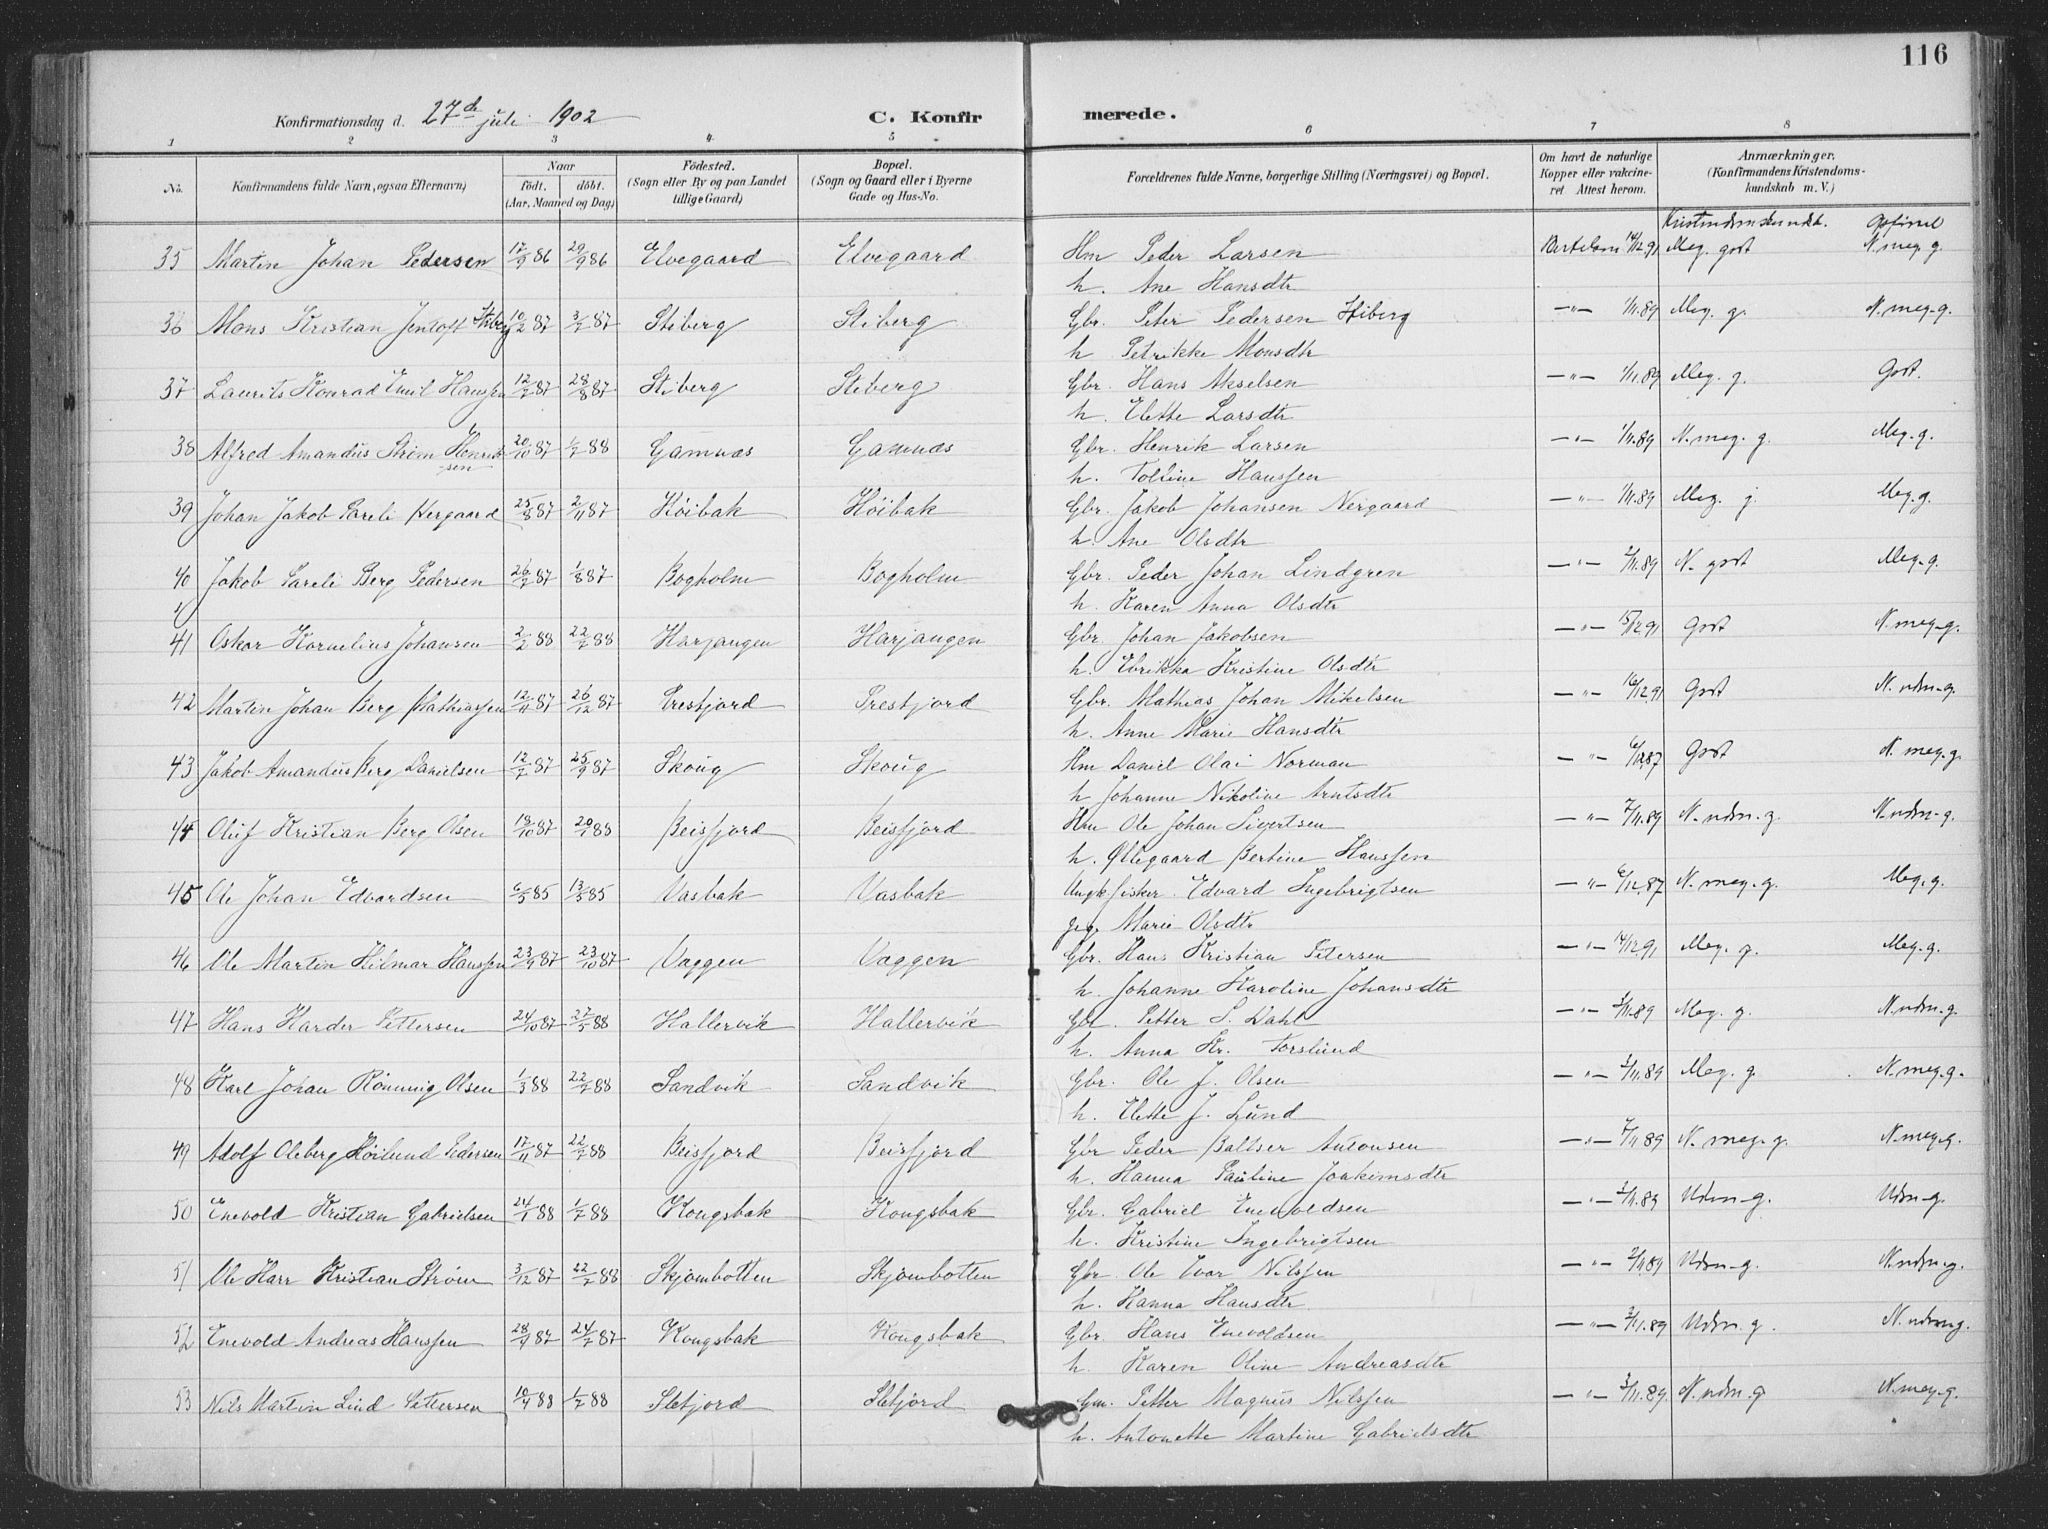 116
Konfirmationsdag d. 27de juli 1902 C. Konfirmerede.
1 2 3 4 5 6 7 8
No. Konfirmandens fulde Navn, ogsaa Efternavn) Naar født. døbt. (Aar, Maaned og Dag) Födested. (Sogn eller By og paa Landet tillige Gaard) Bopæl. (Sogn og Gaard eller i Byerne Gade og Hus-No. Forældrenes fulde Navne, borgerlige Stilling (Næringsvei) og Bopæl. Om havt de naturlige Kopper eller vakcineret Attest herom. Anmærkninger, (Konfirmandens Kristendomskundskab m. V.)
Kristendomskundsk. Opførsel
35 Martin Johan Pedersen 17/9 86 29/9 86 Elvegaard Elvegaard Hm Peder Larsen Bertelsen 14/12.91 Meg. godt N. meg. g.
h. Ane Hansdtr
36 Mons Kristian Jentoft Stiberg 10/2 87 3/7 87 Stiberg Stiberg Gbr. Peter Pedersen Stiberg —"— 1/11.89 Meg. g. N. meg. g.
h Petrikke Monsdtr
37 Laurits Konrad Emil Hanssen 12/7 87 28/8 87 Stiberg Stiberg Gbr. Hans Akselsen —"— 1/11.89 Meg. g. Godt.
h. Elette Larsdtr
38 Alfred Amandus Strøm Henriksen 20/10 87 1/7 88 Gamnæs Gamnæs Gbr. Henrik Larsen —"— 1/11.89 N. meg. g. Meg. g.
h. Tolline Hanssen
39 Johan Jakob Pareli Nergaard 25/8 87 2/11 87 Høibak Høibak Gbr. Jakob Johansen Nergaard —"— 1/11.89 Meg. g. Meg. g.
h. Ane Olsdtr
40 Jakob Pareli Berg Pedersen 26/2 87 1/8 87 Bogholm Bogholm Gbr. Peder Johan Lindgren —"— 2/11.89 N. godt Meg. g.
h. Karen Anna Olsdtr
41 Oskar Kornelius Johansen 2/2 88 22/7 88 Harjangen Harjangen Gbr. Johan Jakobsen —"— 15/12.91 Godt N. meg. g.
h. Ebrikka Kristine Olsdtr
42 Martin Johan Berg Mathiassen 12/11 87 26/12 87 Prestjord Prestjord Gbr. Mathias Johan Mikelsen —"— 16/12.91 Godt N. udm. g.
h. Anne Marie Hansdtr
43 Jakob Amandus Berg Danielsen 12/7 87 25/9 87 Skoug Skoug Hm Daniel Olai Norman —"— 6/12.87 Godt N. meg. g.
h Johanne Nikoline Arntsdtr
44 Oluf Kristian Berg Olsen 18/10 87 20/1 88 Beisfjord Beisfjord Hm Ole Johan Sivertsen —"— 7/11.89 N. udm. g. N. udm. g.
h. Ollegaard Bertine Hanssen
45 Ole Johan Edvardsen 6/5 85 13/5 85 Vasbak Vasbak Ungk. fisker Edvard Ingebrigtsen —"— 6/12.87 N. meg. g. Meg. g.
pige Marie Olsdtr
46 Ole Martin Hilmar Hanssen 23/9 87 23/10 87 Vaggen Vaggen Gbr. Hans Kristian Petersen —"— 14/12.91 Meg. g. Meg. g.
h. Johanne Karoline Johansdtr
47 Hans Harder Pettersen 24/10 87 27/5 88 Hallervik Hallervik Gbr. Petter S. Dahl —"— 2/11.89 Meg. g. N. udm. g.
h. Anna Kr. Torslund
48 Karl Johan Rønning Olsen 1/3 88 22/7 88 Sandvik Sandvik Gbr. Ole J. Olsen —"— 2/11.89 Meg. g. N. meg. g.
h. Elette J. Lund
49 Adolf Oleberg Høilund Pedersen 17/11 87 22/7 88 Beisfjord Beisfjord Gbr Peder Baltser Antonsen —"— 7/11 89 N. meg. g. N. meg. g.
h. Hanna Pauline Joakimsdtr
50 Enevold Kristian Gabrielsen 24/1 88 1/7 88 Kongsbak Kongsbak Gbr. Gabriel Enevoldsen —"— 2/11.89 Udm. g. Udm. g.
h. Kristine Ingebrigtsen
51 Ole Harr Kristian Strøm 3/12 87 22/7 88 Skjombotten Skjombotten Gbr. Ole Ivar Nilssen —"— 2/11.89 Udm. g. N. udm. g.
h. Hanna Hansdtr
52 Enevold Andreas Hanssen 28/4 87 24/7 87 Kongsbak Kongsbak Gbr Hans Enevoldsen —"— 2/11.89 Udm. g. N. udm g.
h. Karen Oline Andreasdtr
53 Nils Martin Lind Pettersen 10/4 88 1/7 88 Sletjord Sletjord Gm. Petter Magnus Nilssen —"— 3/11.89. N. udm. g N. meg. g.
h. Antonette Martine Gabrielsdtr